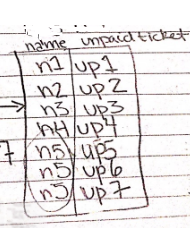 name unpaid ticket
n1 up1
n2 up2
→ n3 up3
n4 up4
7 n5 up5
n5 up6
n5 up7